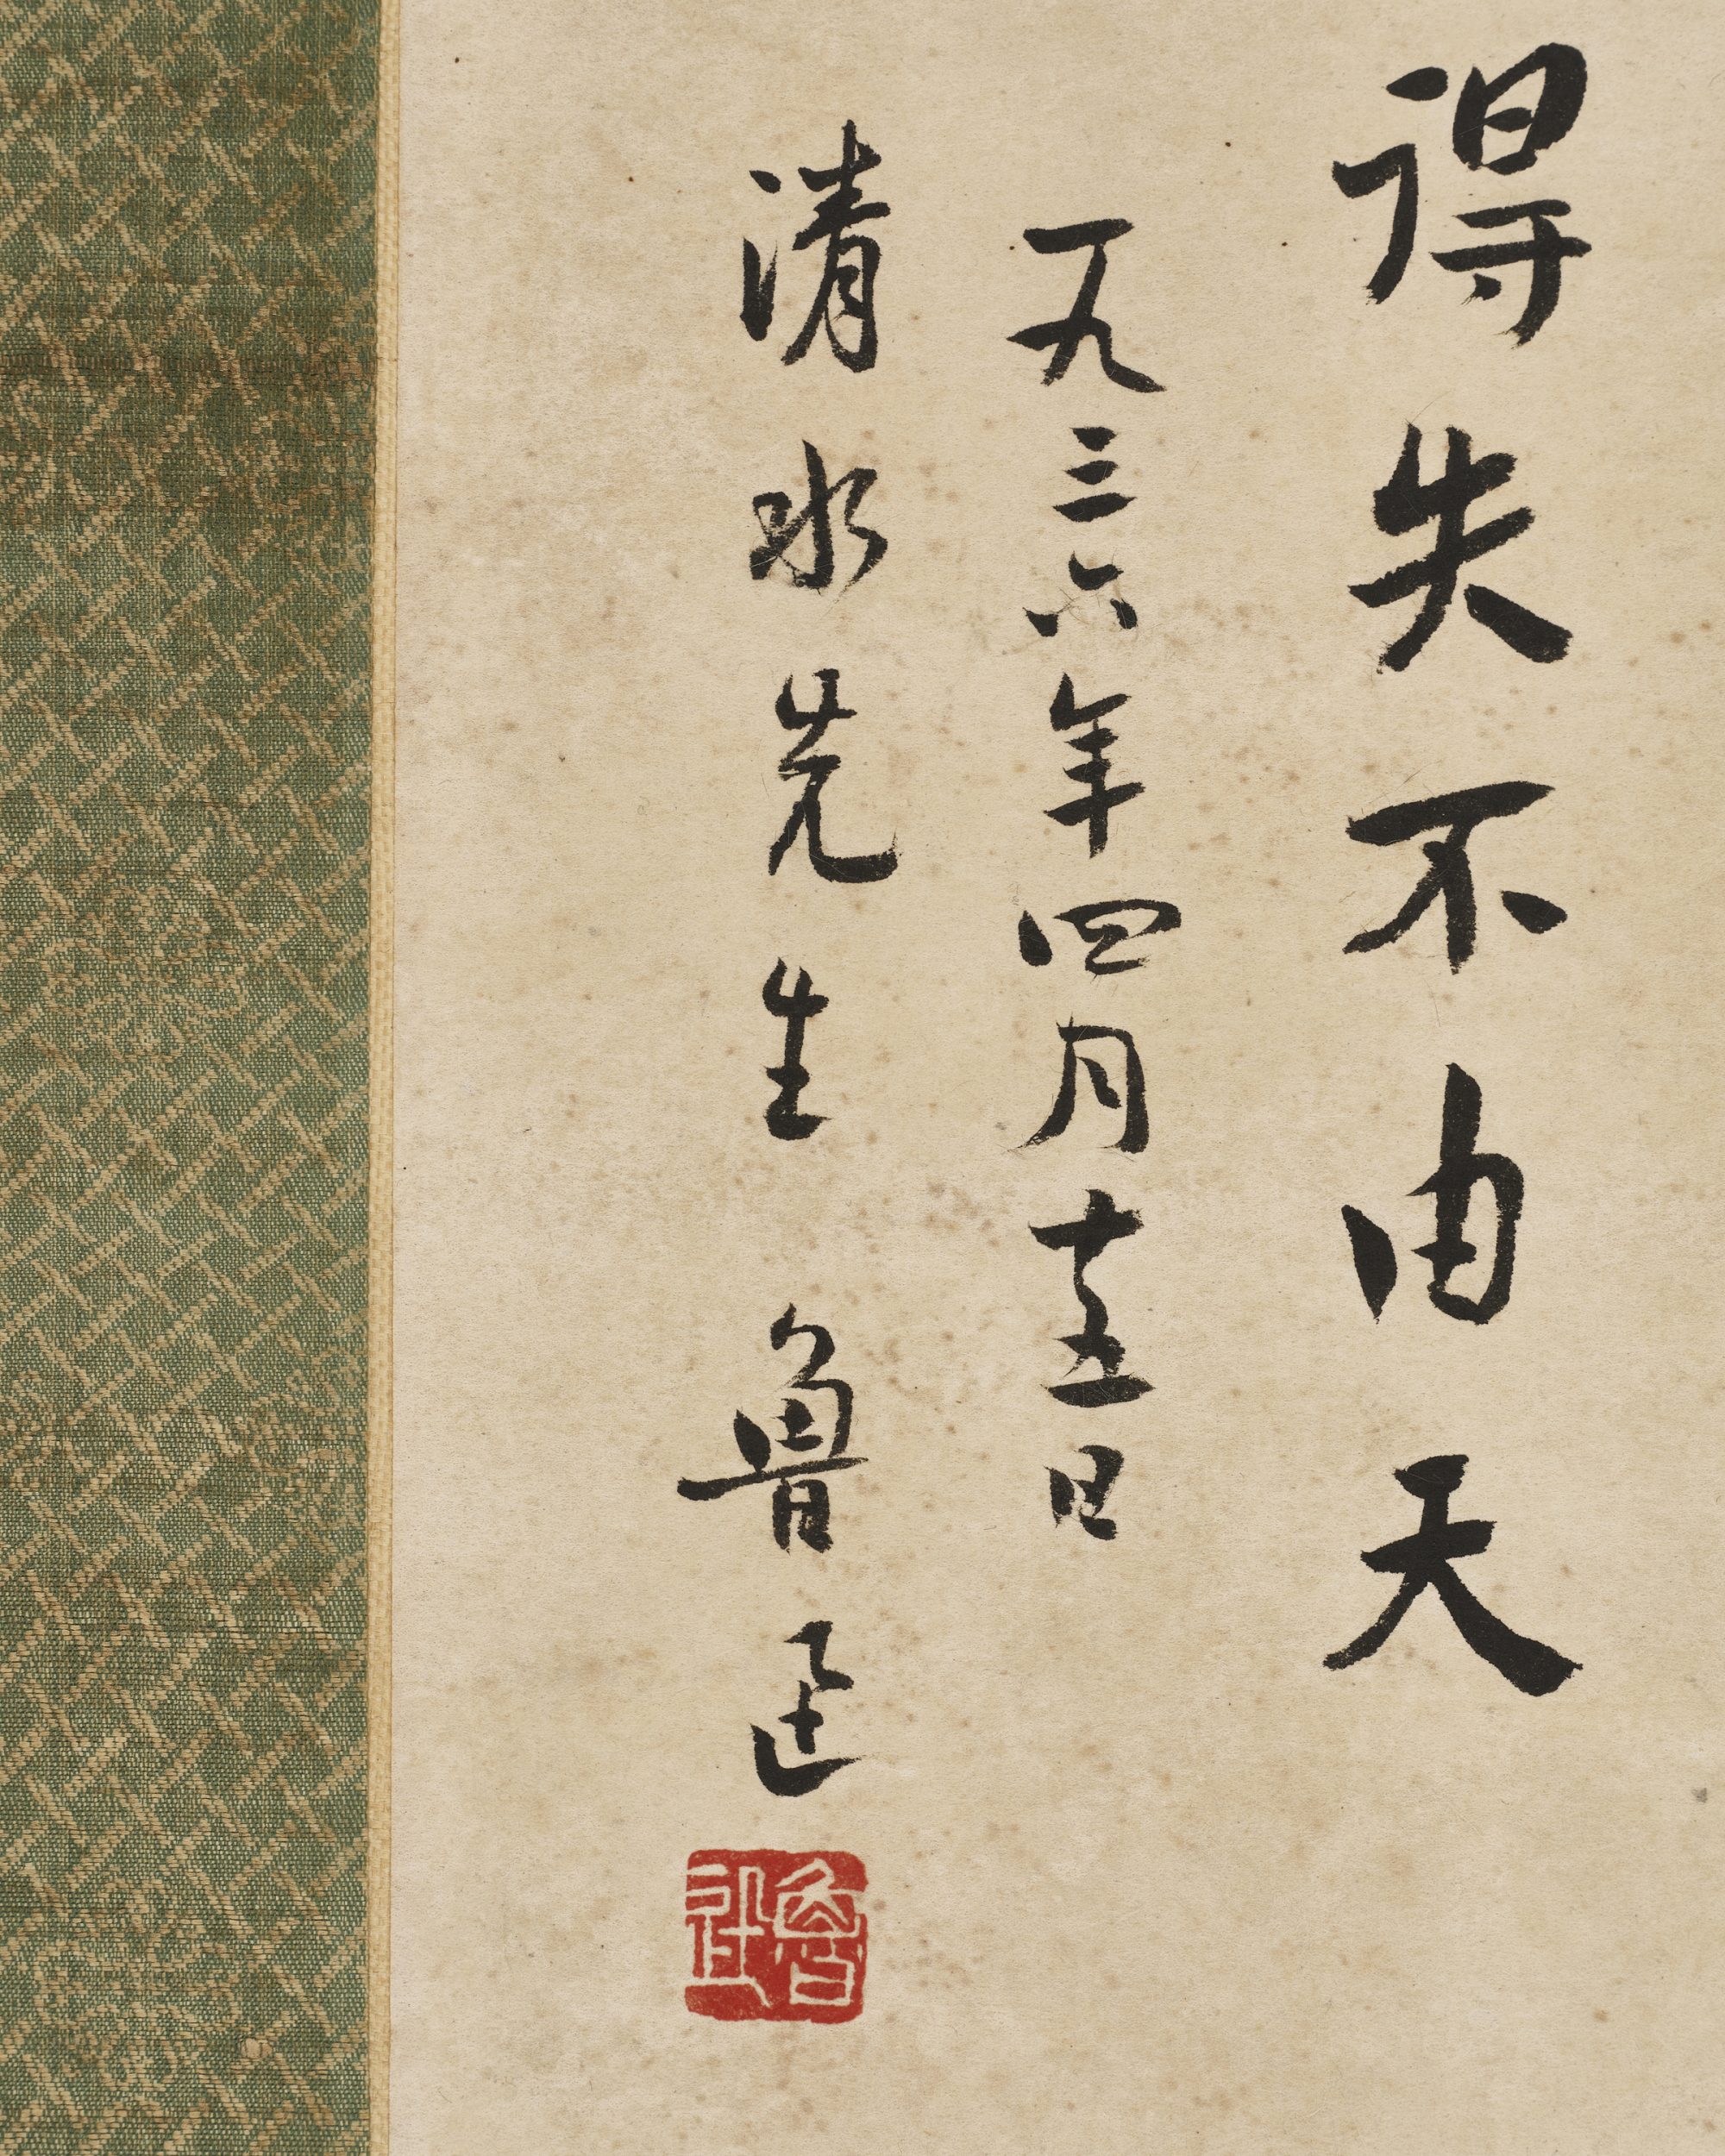 得失不由天
一九三六年四月十五日
清水先生 魯迅
魯迅